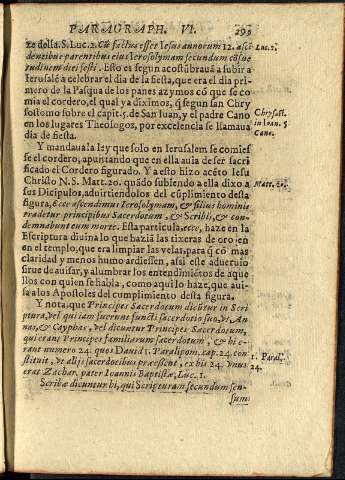 PARAGRAPH. VI. 299
ze dessa. S. Luc. 2. Cũ factus esset Iesus annorum 12. ascẽ- Luc. 2.
dentibus parentibus eius Ierosolymam secundum cõsue
tudinem diei festi. Esto es segun acostũbrauã a subir a
Ierusalẽ a celebrar el dia de la fiesta, que era el dia pri-
mero de la Pasqua de los panes azymos cõ que se co
mia el cordero, el qual ya diximos, q̃ segun san Chry
sostomo sobre el capit. 5. de San Iuan, y el padre Cano
en los lugares Theologos, por excelencia se llamaua
dia de fiesta.
Chrysost.
in Ioan. 5
Cano.
Y mandaua la ley que solo en Ierusalem se comies
se el cordero, apuntando que en ella auia de ser sacri
ficado el Cordero figurado. Y a esto hizo acẽto Iesu
Christo N. S. Matt. 20. quãdo subiendo a ella dixo a
sus Dicipulos, aduirtiendolos del cũplimiento desta
figura, ecce ascendimus Ierosolymam, & filius hominis
tradetur principibus Sacerdotum, & Scribis, & con-
demnabunt eum morte. Esta particula, ecce, haze en la
Escriptura diuina lo que haziã las tixeras de oro en-
en el templo, que era limpiar las velas, para q̃ cõ mas
claridad y menos humo ardiessen, assi este aduerbio
sirue de auisar, y alumbrar los entendimiẽtos de aque
llos con quien se habla, como aqui lo haze, que aui-
sa a los Apostoles del cumplimiento desta figura.
Matt. 20.
Y nota, que Principes Sacerdotum dicũtur in Scri
ptura, vel qui iam fuerunt functi sacerdotio suo, vt An
nas, & Cayphas, vel dicuntur Principes Sacerdotum,
qui erant Principes familiarum sacerdotum, & hi e-
rant numero 24. quos Dauid 1. Paralipom. cap. 24. con
stituit, vt alijs sacerdotibus præessent, ex his 24. vnus
erat Zachar. pater Ioannis Baptistæ, Luc. 1.
1. Paral.
24.
Scribæ dicuntur hi, qui Scripturam secundum sen-
sum